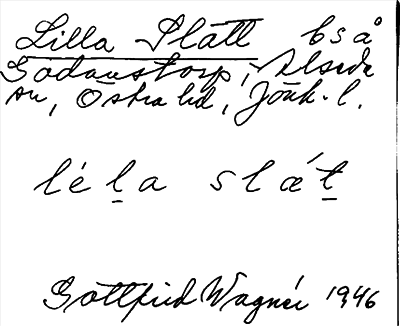 Lilla Slätt bså
Godanstorp, Alseda
sn, Östra hd, Jönk. l.
lé l̠a slǽt̠
Gottfrid Wagnér 1946